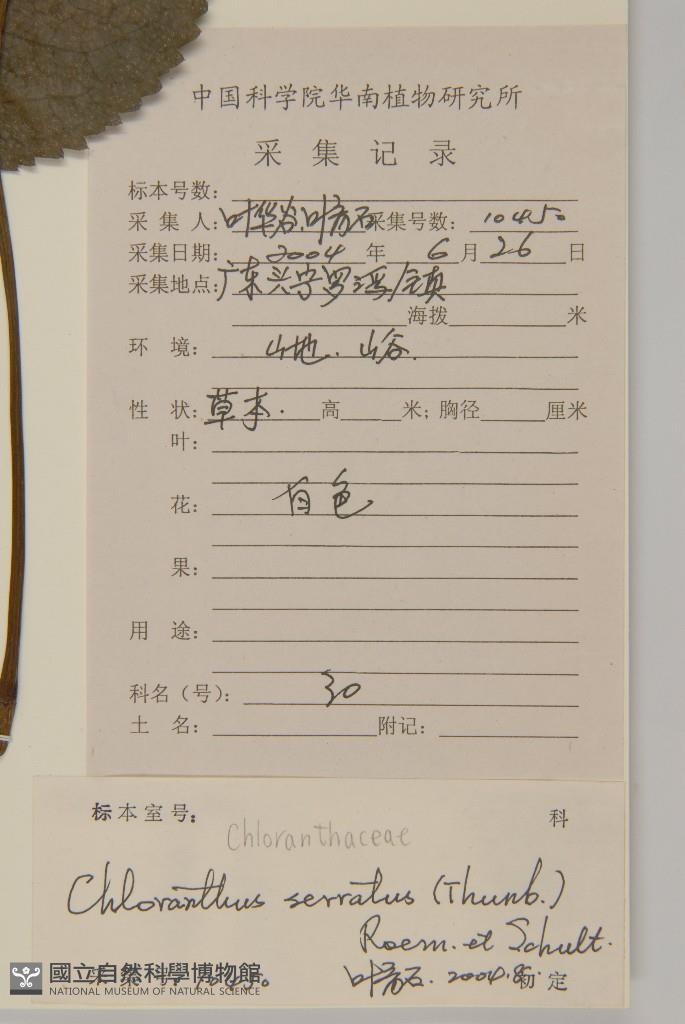 中国科学院华南植物研究所
采集记录
标本号数：
采集人：叶华谷、叶育石 采集号数：10450
采集日期：2004年6月26日
采集地点：广东兴宁罗浮镇
海拨 米
环境：山地．山谷．
性状：草本． 高 米；胸径 厘米
叶：
花：白色
果：
用途：
科名（号）：30
土名： 附记：
标本室号：
Chloranthaceae 科
Chloranthus serratus (Thunb.)
Roem. et Schult.
10450 叶育石．2004. 定
國立自然科學博物館
NATIONAL MUSEUM OF NATURAL SCIENCE